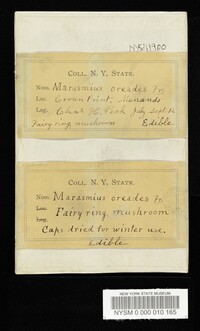 COLL. N. Y. STATE.
Nom. Marasmius oreades Fr.
Loc. Crown Point, Menands
Leg. Chas H. Peck July Sept.
Fairy ring mushroom Edible
COLL. N. Y. STATE.
Nom. Marasmius oreades Fr.
Loc. Fairy ring, mushroom
Leg.
Caps dried for winter use.
Edible
NEW YORK STATE MUSEUM
NYSM 0 000 010 165